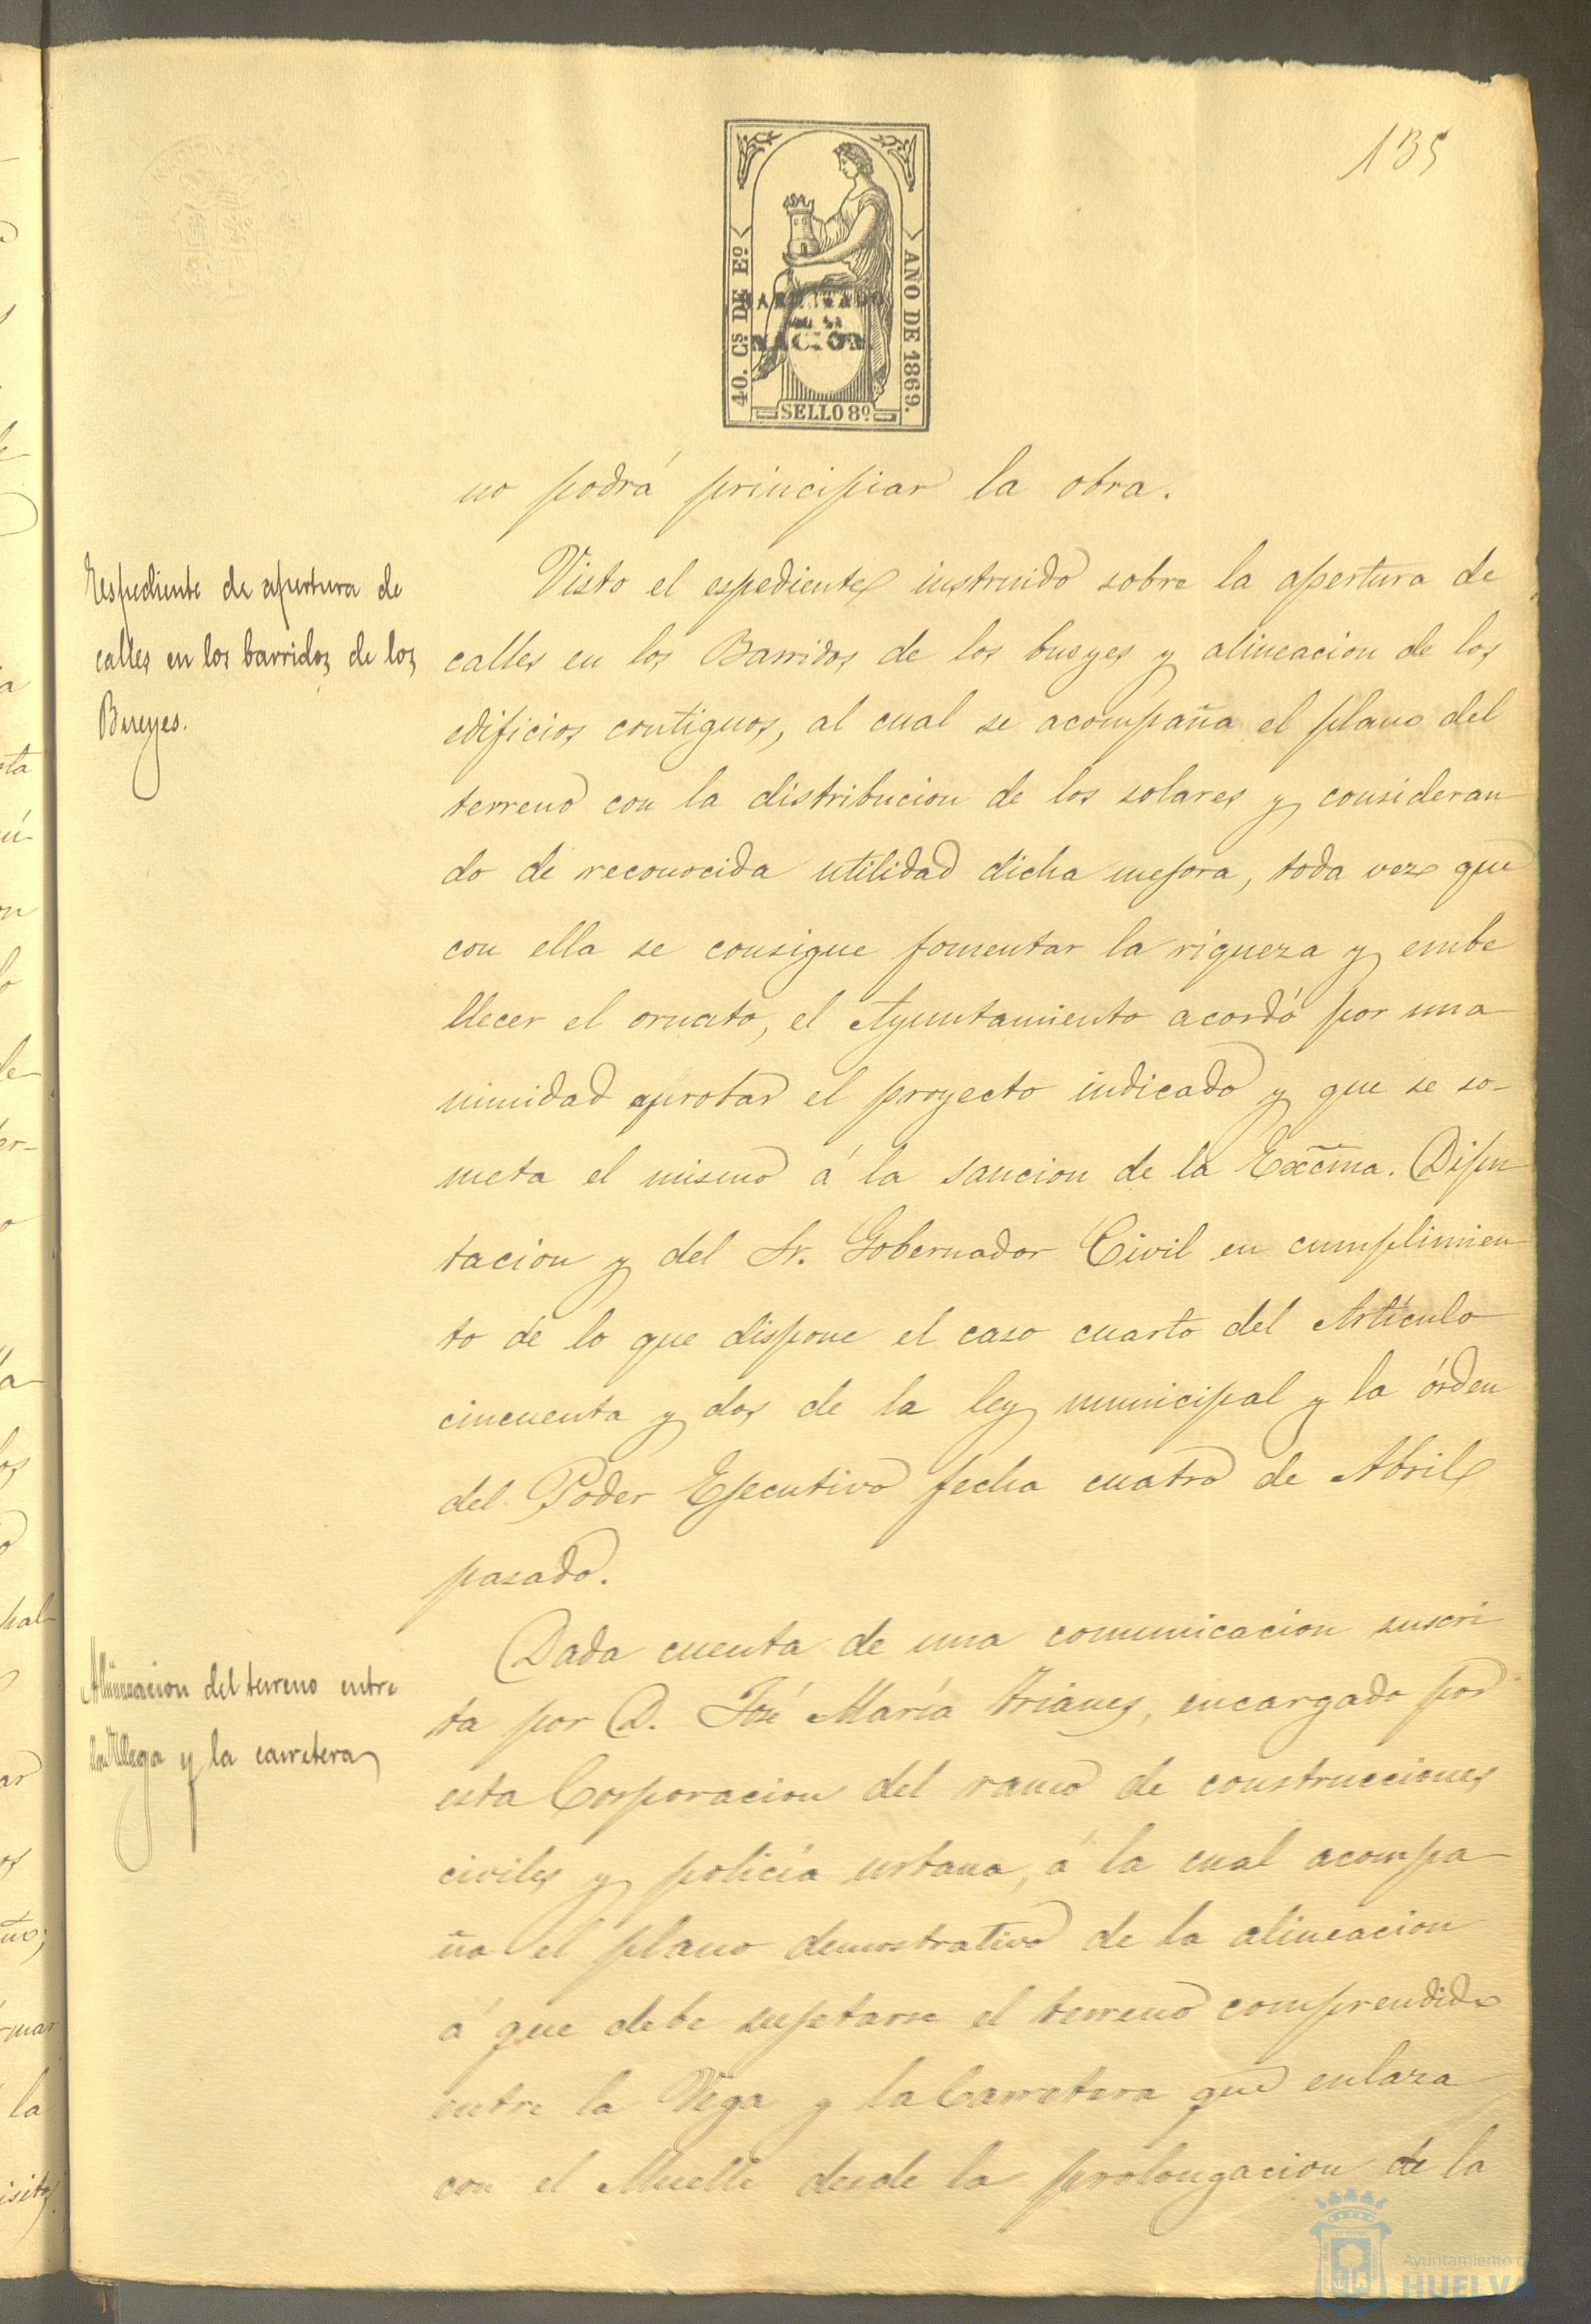 135
40. Cs. DE Eo.
AÑO DE 1869.
HABILITADO
POR LA
NACION.
SELLO 8o.
no podrá principiar la obra.
Espediente de apertura de
calles en los barridos de los
Bueyes.
Visto el espediente instruido sobre la apertura de
calles en los Barridos de los bueyes y alineacion de los
edificios contiguos, al cual se acompaña el plano del
terreno con la distribucion de los solares y consideran
do de reconocida utilidad dicha mejora, toda vez que
con ella se consigue fomentar la riqueza y embe
llecer el ornato, el Ayuntamiento acordó por una
nimidad aprobar el proyecto indicado y que se so-
meta el mismo á la sancion de la Excma. Dipu
tacion y del Sr. Gobernador Civil en cumplimien
to de lo que dispone el caso cuarto del Artículo
cincuenta y dos de la ley municipal y la órden
del Poder Ejecutivo fecha cuatro de Abril
pasado.
Alineacion del terreno entre
la Vega y la carretera
Dada cuenta de una comunicacion suscri
ta por D. José María Trianes, encargado por
esta Corporacion del ramo de construcciones
civiles y policía urbana, á la cual acompa
ña el plano demostrativo de la alineacion
á que debe sujetarse el terreno comprendido
entre la Vega y la Carretera que enlaza
con el Muelle desde la prolongacion de la
Ayuntamiento de
HUELVA